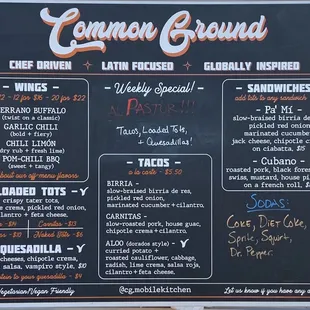 Common Ground
CHEF DRIVEN + LATIN FOCUSED + GLOBALLY INSPIRED
WINGS
12 for $16 - 20 for $22
SERRANO BUFFALO
(twist on a classic)
GARLIC CHILI
(bold + fiery)
CHILI LIMÓN
(dry rub + fresh lime)
POM-CHILI BBQ
(sweet + tangy)
about our off-menu flavors
LOADED TOTS - Y
crispy tater tots,
crema, pickled red onion,
cilantro + feta cheese.
Carnitas - $15
Naked Tots - $6
QUESADILLA - Y
cheeses, chipotle crema,
salsa, vampiro style, $10
protein to your quesadilla - $4
Vegetarian/Vegan Friendly
Weekly Special!
PASTOR!!!
Tacos, Loaded Tots,
+ Quesadillas!
TACOS
a la carte - $5.50
BIRRIA -
slow-braised birria de res,
pickled red onion,
marinated cucumber + cilantro.
CARNITAS -
slow-roasted pork, house guac,
chipotle crema + cilantro.
ALOO (dorados style) - Y
curried potato +
roasted cauliflower, cabbage,
radish, lime crema, salsa roja,
cilantro + feta cheese.
@cg.mobilekitchen
SANDWICHES
add tots to any sandwich
- Pa' Mí -
slow-braised birria de
pickled red onion
marinated cucumber
jack cheese, chipotle c
on ciabatta, $15
- Cubano -
roasted pork, black fores
swiss, mustard, house pi
on a french roll, $
SODAS:
COKE, DIET COKE,
Sprite, Squirt,
Dr. Pepper
Let us know if you have any